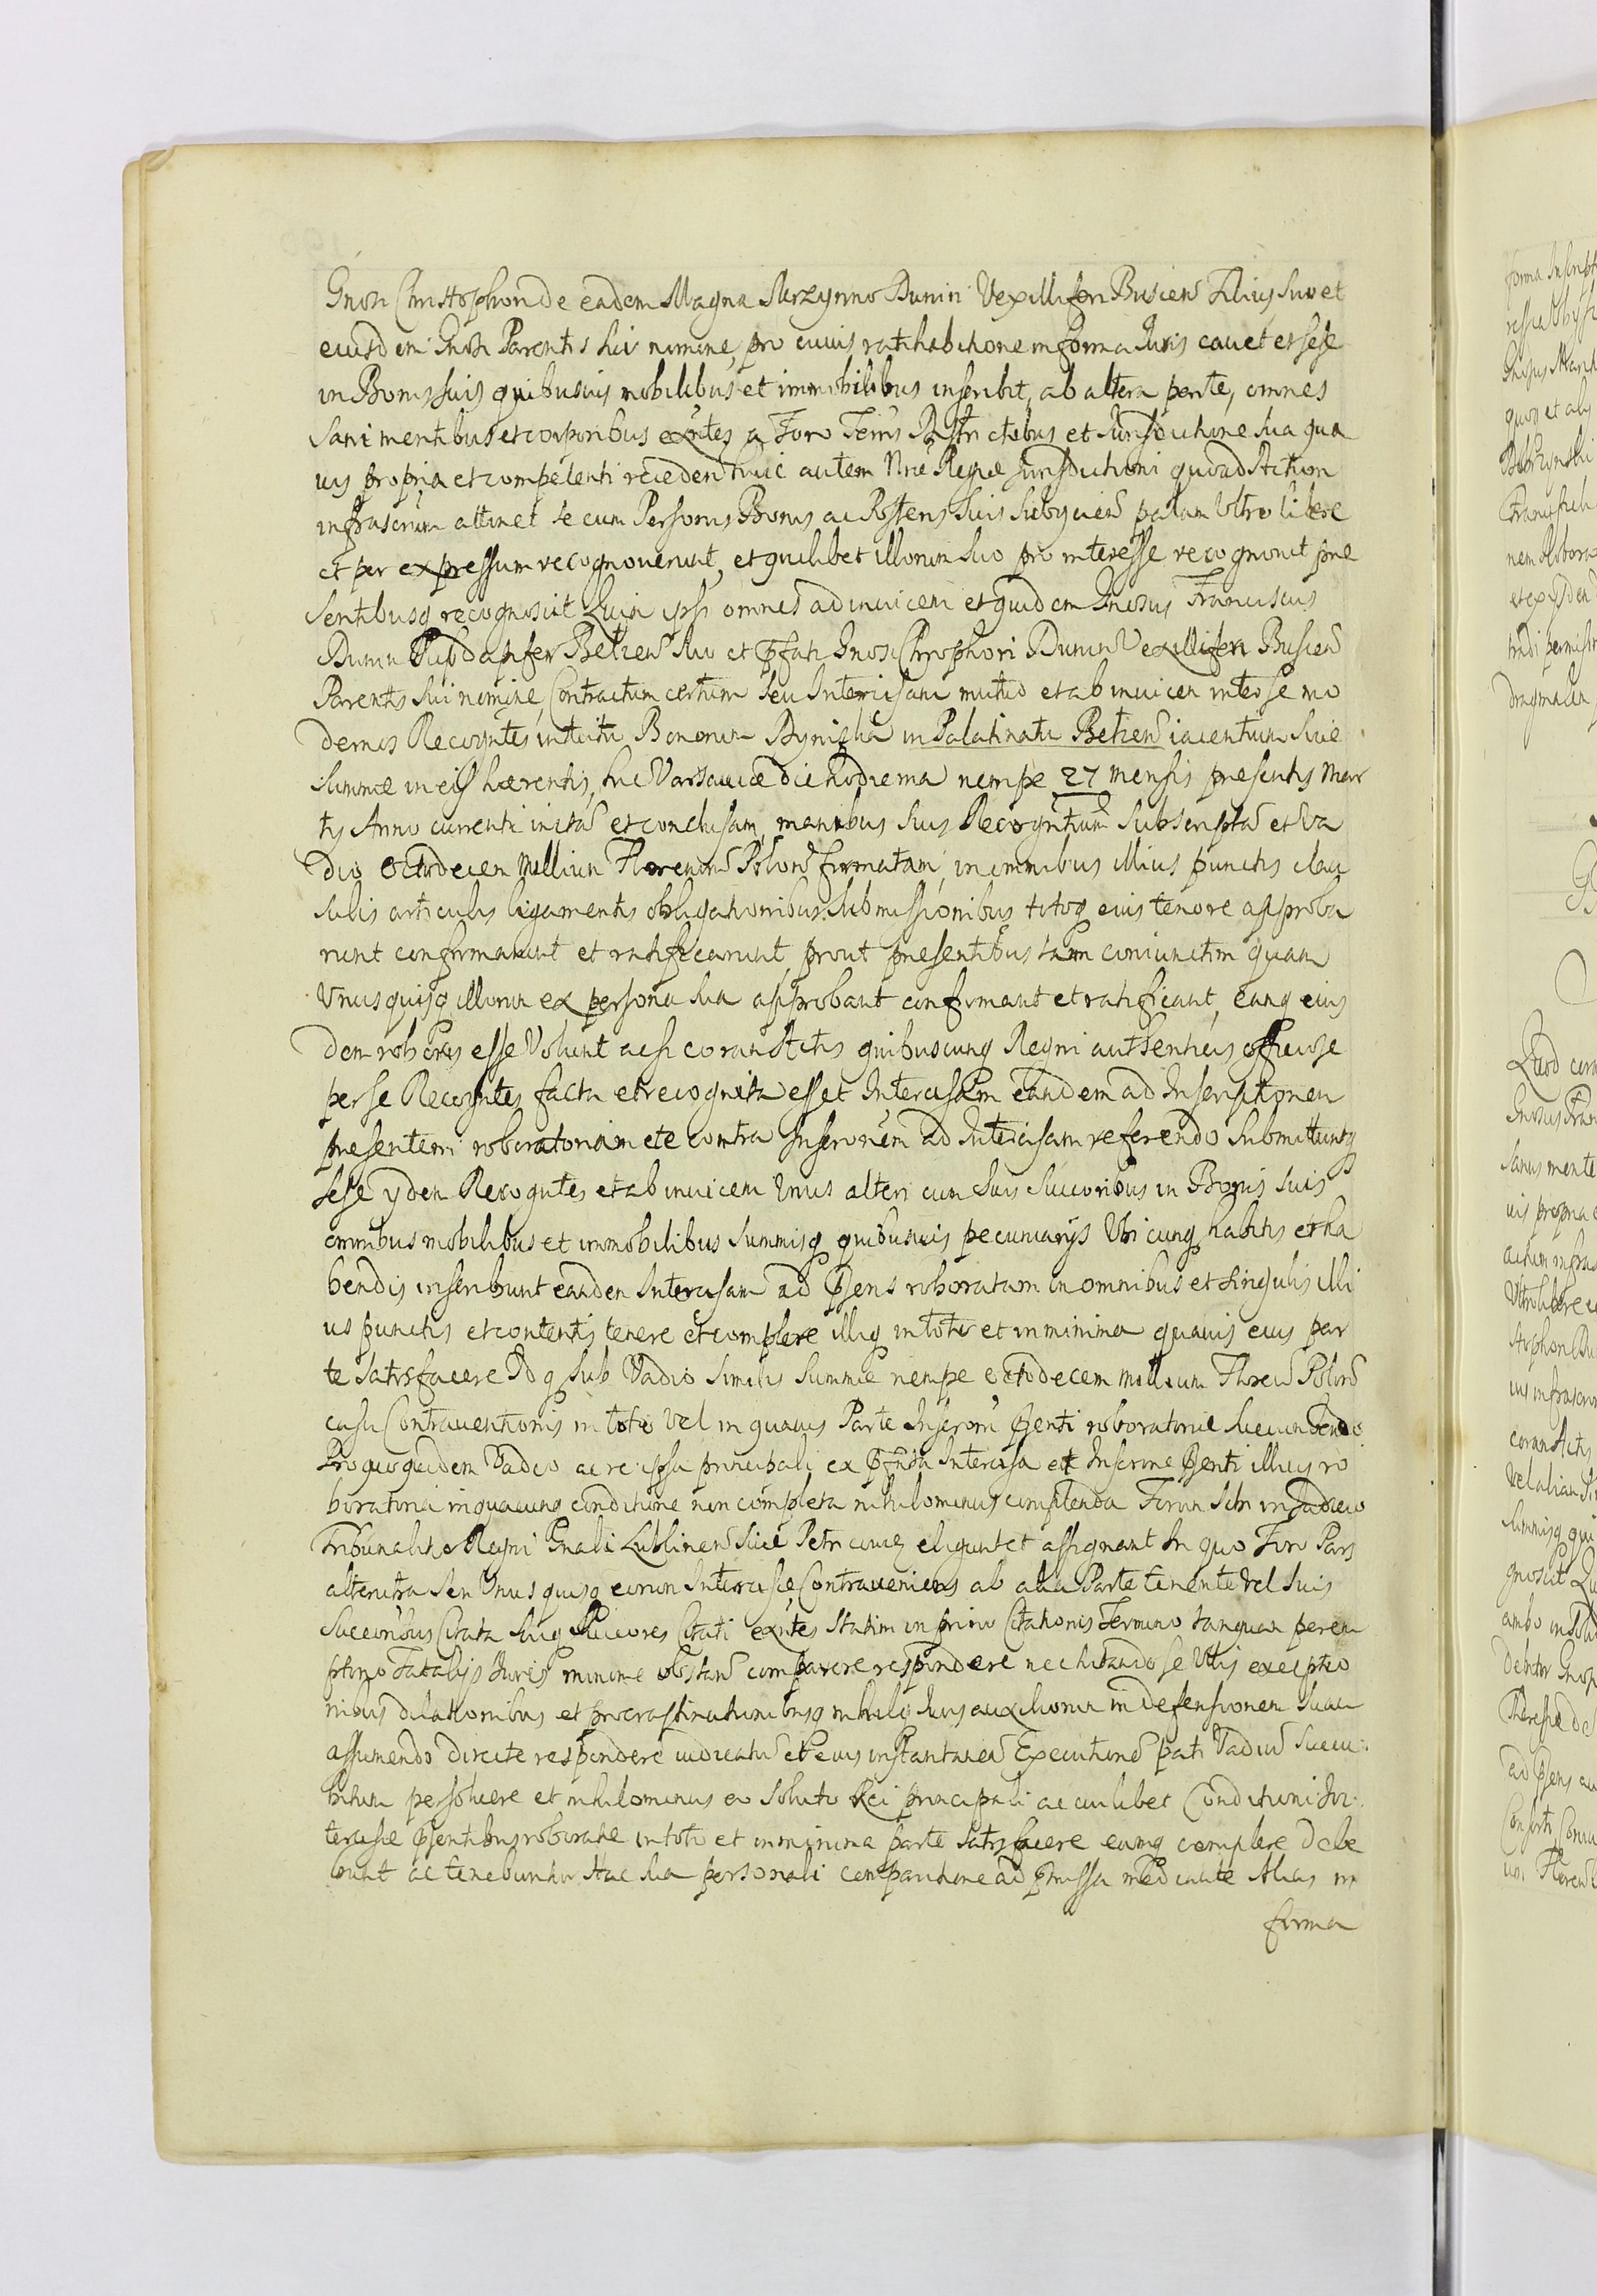 Gnosi Christophori de eadem Magna Skrzynno Dunin Vexilliferi Buscens Filius suo et
eiusdem Gnosi Parentis sui nomine, pro cuius ratihabitione in forma Juris cauet et sese
in Bonis suis quibusuis mobilibus et immobilibus inscribit, ab altera parte, omnes
Sani mentibus et corporibus exntes a Foro Terris Districtibus et Jurisdictione sua qua
uis propria et competenti receden huic autem Nrae Regiae Jurisdictioni quoad Actum
infrascrum attinet se cum Personis Bonis ac Posteris suis subijcien palam Vltro libere
et per expressum recognouerunt, et quilibet illorum suo pro interesse recognouit prae
sentibusq recognoscit Quia ipsi omnes ad inuicem et quidem Gnosus Franciscus
Dunin Subdapifer Belzen suo et pfati Gnosi Chrophori Dunin Vexilliferi Buscen
Parentis sui nomine, Contractum certum seu Intercisam mutuo et ab inuicem inter se mo
dernos Recogntes intuitu Bonorum in Palatinatu Belzen iacentium siue
Summae in eis haerentis, hic Varsauiae die hodierna nempe 27 mensis praesentis Mar
tij Anno currenti initam et conclusam, manibus suis Recogntium subscriptam et Va
dio Octodecem Millium Florenorum Polon firmatam, in omnibus illius punctis clau
sulis articulis ligamentis obligationibus submissionibus totoq eius tenore approba
runt confirmarunt et ratificarunt, prout praesentibus tam coniunctim quam
Vnusquisq illorum ex persona sua approbant confirmant et ratificant, eamq eius
dem roboris esse Volunt acsi coram Actis quibuscunq Regni authenticis officiose
per se Recogntes facta et recognita esset Intercisam eandem ad Inscriptionem
praesentem roboratoriam et e contra Inscronem ad Intercisam referendo Submittuntq
sese ydem Recogntes et ab inuicem Vnus alteri cum suis succoribus in Bonis suis
omnibus mobilibus et immobilibus summisq quibusuis pecuniarijs Vbicunq habitis et ha
bendis inscribunt eandem Intercisam ad psens roboratam in omnibus et singulis illi
us punctis et contentis tenere et complere illiq in toto et in minima quauis eius par
te satisfacere Idq sub Vadio similis summae nempe octodecem millium Floren Polon
casu Contrauentionis in toto vel in quauis Parte Inscroni psenti roboratoriae succumbendo
Pro quo quidem Vadio ac re ipsa principali ex pfata Intercisa et Inscrone psenti illius ro
boratoria in quacunq conditione non completa nihilominus complenda Forum sibi in Judicio
Tribunalit Regni Gnali Lublinen siue Petricouien eligunt et assignant In quo Foro Pars
alterutra seu Vnusquisq eorum Intercisae Contraueniens ab alia Parte tenente Vel suis
Succoribus Citata suiq Succores Citati exntes statim in primo Citationis Termino tanquam perem
ptorio Fatalijs Juris minime obstan comparere respondere nec iuuando se Vllis exceptio
nibus dilationibus et procrastinationibusq nihilq Juris auxiliorum in defensionem suam
assumendo directe respondere iudicatum et eius instantaneam Executionem pati Vadium succu
bitum persoluere et nihilominus eo soluto Rei principali ac cuilibet Conditioni In
tercisae psentibus roboratae in toto et in minima parte satisfacere eamq complere debe
bunt ac tenebuntur Hac sua personali comparitione ad pmissa mediante Alias in
forma